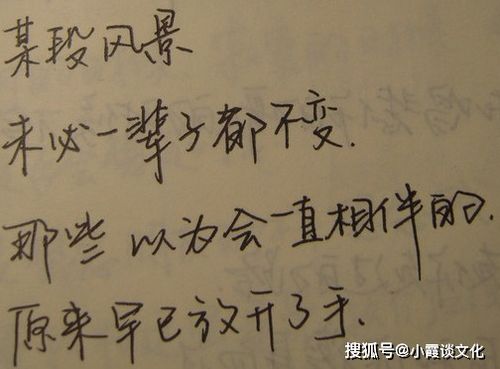 某段风景
未必一辈子都不变.
那些以为会一直相伴的.
原来早已放开了手.
搜狐号@小霞谈文化